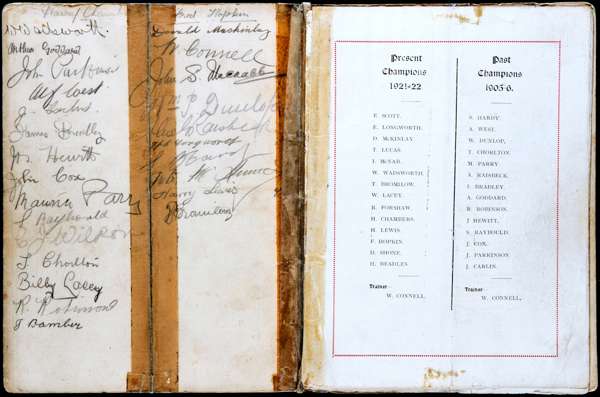 Harry Chambers
W Wadsworth.
Arthur Goddard
John Parkinson
Alf West
J.
James Bradley
Jos Hewitt
John Cox
Maurice Parry
S Raybould
C J Wilson
T Chorlton
Billy Lacey
R Robinson
T Bamber
Fred Hopkin
Donald Mackinlay
W Connell
John S. McNabb
Wm P Dunlop
E Longworth
Harry
Bromilow
Present
Champions
1921-22
E. SCOTT.
E. LONGWORTH.
D. MCKINLAY
T. LUCAS.
J. MCNAB.
W. WADSWORTH.
T. BROMILOW.
W. LACEY.
R. FORSHAW.
H. CHAMBERS.
H. LEWIS.
F. HOPKIN.
D. SHONE.
H. BEADLES
Trainer
W. CONNELL.
Past
Champions
1905-6.
S. HARDY.
A. WEST.
W. DUNLOP,
T. CHORLTON.
M. PARRY
A. RAISBECK.
J. BRADLEY.
A. GODDARD.
R. ROBINSON.
J HEWITT.
S. RAYBOULD.
J. COX.
J. PARKINSON
J. CARLIN.
Trainer
W. CONNELL,